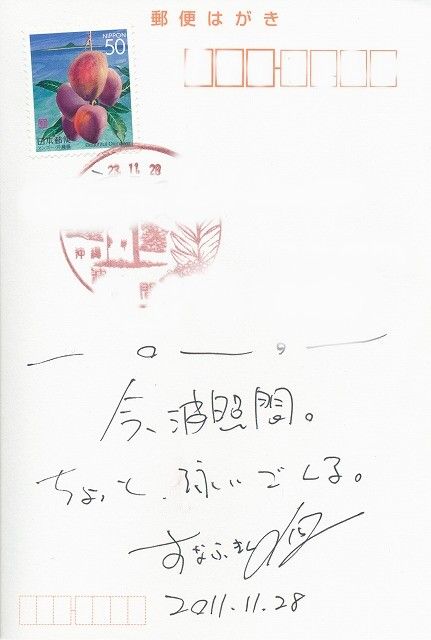 郵便はがき
NIPPON
50
日本郵便
23.11.28
沖縄
波 間
今、波照間。
ちょっと、泳いでくる。
すなふきん
2011.11.28